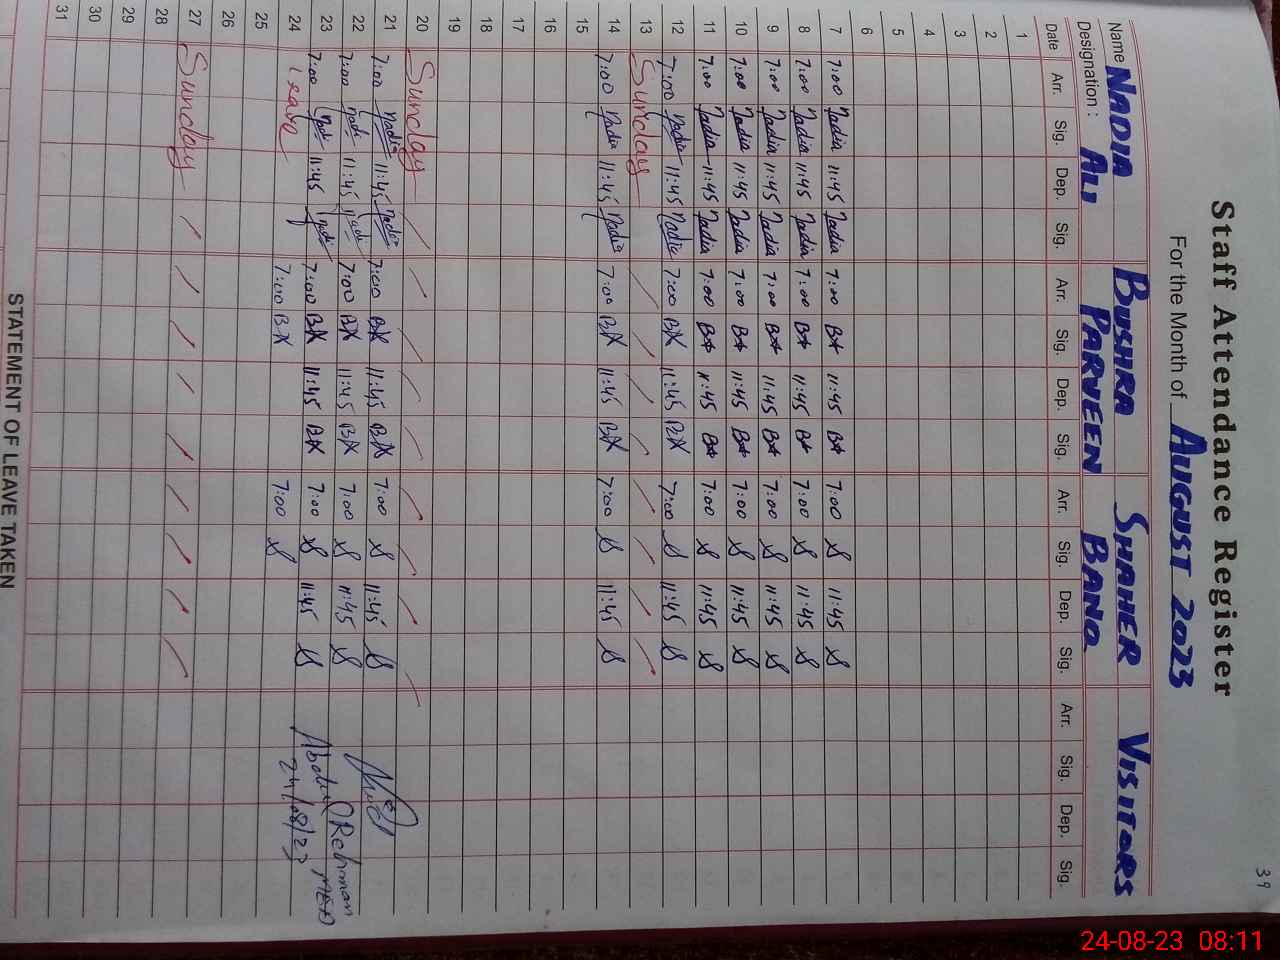 39
Staff Attendance Register
For the Month of AUGUST 2023
Name NADIA ALI BUSHRA PARVEEN SHAHER BANO VISITORS
Designation :
Date Arr. Sig. Dep. Sig. Arr. Sig. Dep. Sig. Arr. Sig. Dep. Sig. Arr. Sig. Dep. Sig.
1
2
3
4
5
6
7 7:00 Nadia 11:45 Nadia 7:00 11:45 7:00 11:45
8 7:00 Nadia 11:45 Nadia 7:00 11:45 7:00 11:45
9 7:00 Nadia 11:45 Nadia 7:00 11:45 7:00 11:45
10 7:00 Nadia 11:45 Nadia 7:00 11:45 7:00 11:45
11 7:00 Nadia 11:45 Nadia 7:00 11:45 7:00 11:45
12 7:00 Nadia 11:45 Nadia 7:00 11:45 7:00 11:45
13 Sunday
14 7:00 Nadia 11:45 Nadia 7:00 11:45 7:00 11:45
15
16
17
18
19
20 Sunday
21 7:00 Nadia 11:45 Nadia 7:00 11:45 7:00 11:45
22 7:00 Nadi 11:45 Nadi 7:00 11:45 7:00 11:45
23 7:00 Nadi 11:45 Nadi 7:00 11:45 7:00 11:45 Abdul Rehman
24 Leave 7:00 7:00 24/08/23
25
26
27 Sunday
28
29
30
31
STATEMENT OF LEAVE TAKEN
24-08-23 08:11